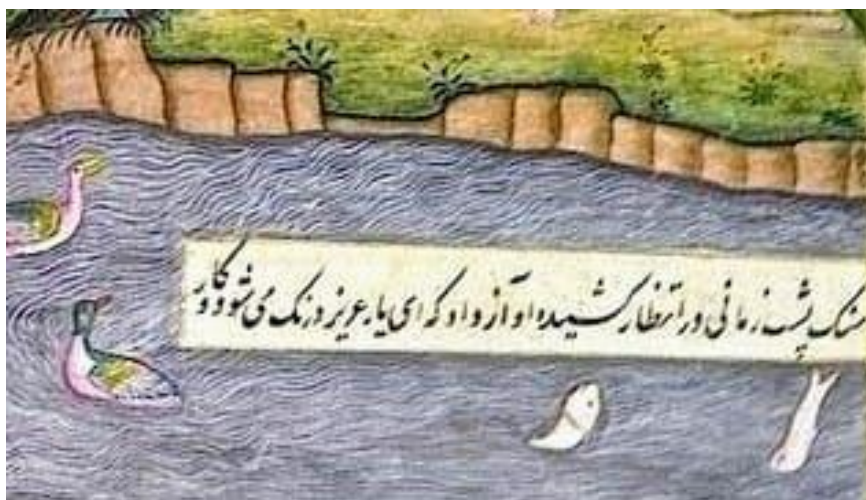 سنک پشت زمانی در انتظار کشیده او آز داد که ای یار عزیز درنک می شود و کار